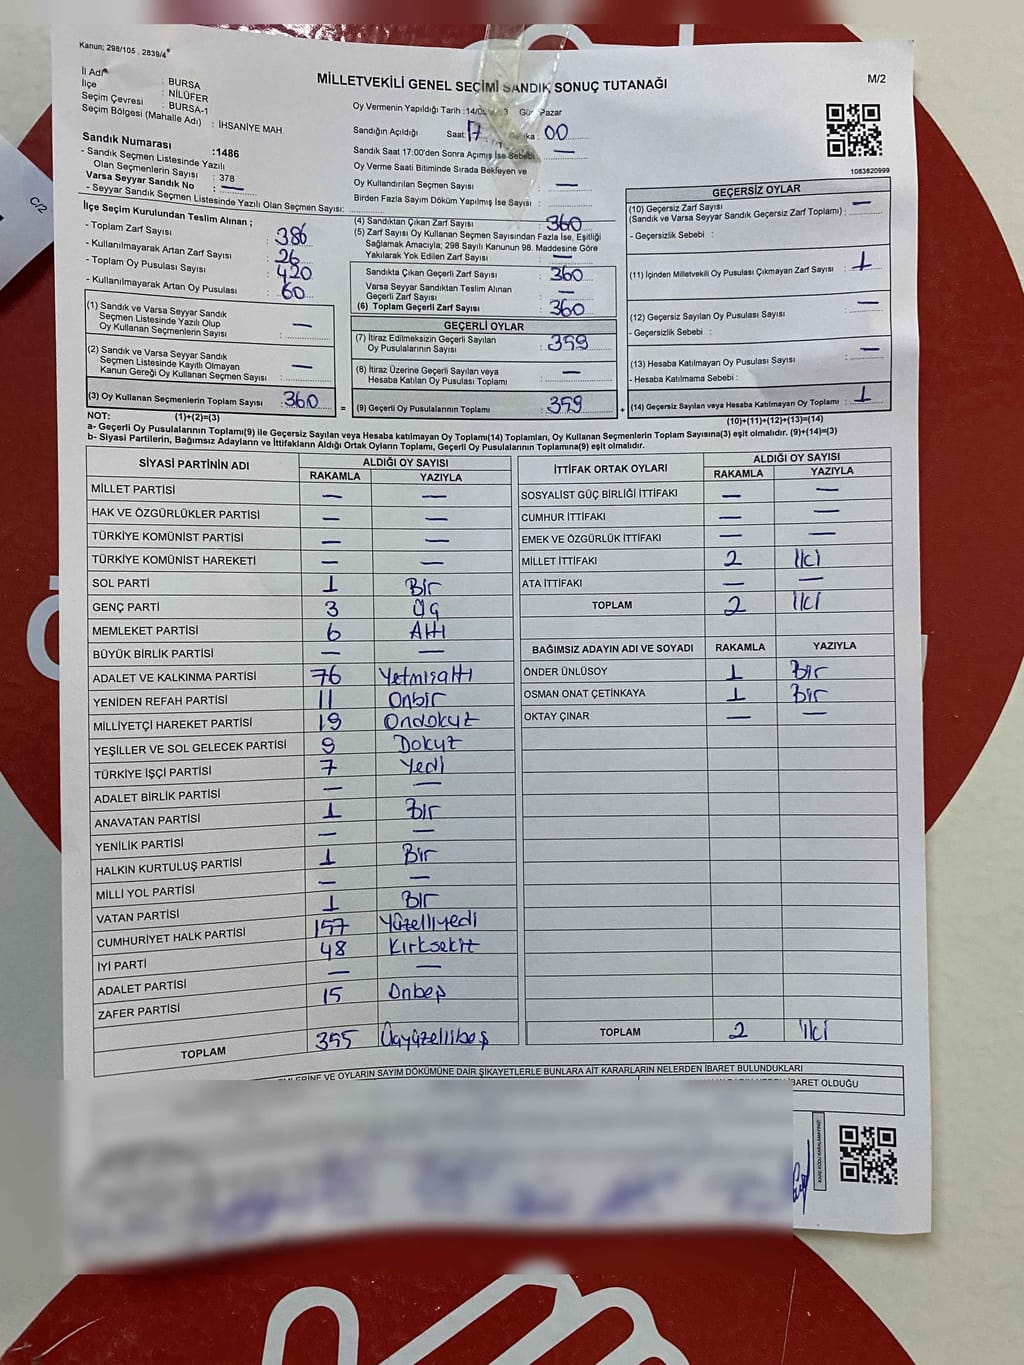 Kanun; 298/105 . 2839/4
MİLLETVEKİLİ GENEL SEÇİMİ SANDIK SONUÇ TUTANAĞI
M/2
İl Adı : BURSA
İlçe : NİLÜFER
Seçim Çevresi : BURSA-1
Seçim Bölgesi (Mahalle Adı) : İHSANİYE MAH.
Sandık Numarası :1486
- Sandık Seçmen Listesinde Yazılı
Olan Seçmenlerin Sayısı : 378
Varsa Seyyar Sandık No : —
- Seyyar Sandık Seçmen Listesinde Yazılı Olan Seçmen Sayısı:
Oy Vermenin Yapıldığı Tarih :14/0 3 Gü Pazar
Sandığın Açıldığı Saat: 17 ka : 00
Sandık Saat 17:00'den Sonra Açımış İse Sebebi : —
Oy Verme Saati Bitiminde Sırada Bekleyen ve
Oy Kullandırılan Seçmen Sayısı : —
Birden Fazla Sayım Döküm Yapılmış İse Sayısı :
1083820999
İlçe Seçim Kurulundan Teslim Alınan ;
- Toplam Zarf Sayısı : 386
- Kullanılmayarak Artan Zarf Sayısı : 26
- Toplam Oy Pusulası Sayısı : 420
- Kullanılmayarak Artan Oy Pusulası : 60
(1) Sandık ve Varsa Seyyar Sandık
Seçmen Listesinde Yazılı Olup
Oy Kullanan Seçmenlerin Sayısı : —
(2) Sandık ve Varsa Seyyar Sandık
Seçmen Listesinde Kayıtlı Olmayan
Kanun Gereği Oy Kullanan Seçmen Sayısı : —
(3) Oy Kullanan Seçmenlerin Toplam Sayısı : 360
(4) Sandıktan Çıkan Zarf Sayısı : 360
(5) Zarf Sayısı Oy Kullanan Seçmen Sayısından Fazla İse, Eşitliği
Sağlamak Amacıyla; 298 Sayılı Kanunun 98. Maddesine Göre
Yakılarak Yok Edilen Zarf Sayısı : —
Sandıkta Çıkan Geçerli Zarf Sayısı : 360
Varsa Seyyar Sandıktan Teslim Alınan
Geçerli Zarf Sayısı : —
(6) Toplam Geçerli Zarf Sayısı : 360
GEÇERLİ OYLAR
(7) İtiraz Edilmeksizin Geçerli Sayılan
Oy Pusulalarının Sayısı : 359
(8) İtiraz Üzerine Geçerli Sayılan veya
Hesaba Katılan Oy Pusulası Toplamı : —
= (9) Geçerli Oy Pusulalarının Toplamı : 359
GEÇERSİZ OYLAR
(10) Geçersiz Zarf Sayısı
(Sandık ve Varsa Seyyar Sandık Geçersiz Zarf Toplamı) : —
- Geçersizlik Sebebi :
(11) İçinden Milletvekili Oy Pusulası Çıkmayan Zarf Sayısı : 1
(12) Geçersiz Sayılan Oy Pusulası Sayısı : —
- Geçersizlik Sebebi :
(13) Hesaba Katılmayan Oy Pusulası Sayısı : —
- Hesaba Katılmama Sebebi :
+ (14) Geçersiz Sayılan veya Hesaba Katılmayan Oy Toplamı : 1
NOT: (1)+(2)=(3)
(10)+(11)+(12)+(13)=(14)
a- Geçerli Oy Pusulalarının Toplamı(9) ile Geçersiz Sayılan veya Hesaba katılmayan Oy Toplamı(14) Toplamları, Oy Kullanan Seçmenlerin Toplam Sayısına(3) eşit olmalıdır. (9)+(14)=(3)
b- Siyasi Partilerin, Bağımsız Adayların ve İttifakların Aldığı Ortak Oyların Toplamı, Geçerli Oy Pusulalarının Toplamına(9) eşit olmalıdır.
SİYASİ PARTİNİN ADI ALDIĞI OY SAYISI
RAKAMLA YAZIYLA
MİLLET PARTİSİ — —
HAK VE ÖZGÜRLÜKLER PARTİSİ — —
TÜRKİYE KOMÜNİST PARTİSİ — —
TÜRKİYE KOMÜNİST HAREKETİ — —
SOL PARTİ 1 Bir
GENÇ PARTİ 3 Üç
MEMLEKET PARTİSİ 6 Altı
BÜYÜK BİRLİK PARTİSİ — —
ADALET VE KALKINMA PARTİSİ 76 Yetmişaltı
YENİDEN REFAH PARTİSİ 11 Onbir
MİLLİYETÇİ HAREKET PARTİSİ 19 Ondokuz
YEŞİLLER VE SOL GELECEK PARTİSİ 9 Dokuz
TÜRKİYE İŞÇİ PARTİSİ 7 Yedi
ADALET BİRLİK PARTİSİ — —
ANAVATAN PARTİSİ 1 Bir
YENİLİK PARTİSİ — —
HALKIN KURTULUŞ PARTİSİ 1 Bir
MİLLİ YOL PARTİSİ — —
VATAN PARTİSİ 1 Bir
CUMHURİYET HALK PARTİSİ 157 Yüzelliyedi
İYİ PARTİ 48 Kırksekiz
ADALET PARTİSİ — —
ZAFER PARTİSİ 15 Onbeş
TOPLAM 355 Üçyüzellibeş
İTTİFAK ORTAK OYLARI ALDIĞI OY SAYISI
RAKAMLA YAZIYLA
SOSYALİST GÜÇ BİRLİĞİ İTTİFAKI — —
CUMHUR İTTİFAKI — —
EMEK VE ÖZGÜRLÜK İTTİFAKI — —
MİLLET İTTİFAKI 2 İki
ATA İTTİFAKI — —
TOPLAM 2 İki
BAĞIMSIZ ADAYIN ADI VE SOYADI RAKAMLA YAZIYLA
ÖNDER ÜNLÜSOY 1 Bir
OSMAN ONAT ÇETİNKAYA 1 Bir
OKTAY ÇINAR — —
TOPLAM 2 iki
VE OYLARIN SAYIM DÖKÜMÜNE DAİR ŞİKAYETLERLE BUNLARA AİT KARARLARIN NELERDEN İBARET BULUNDUKLARI
İBARET OLDUĞU
C/2